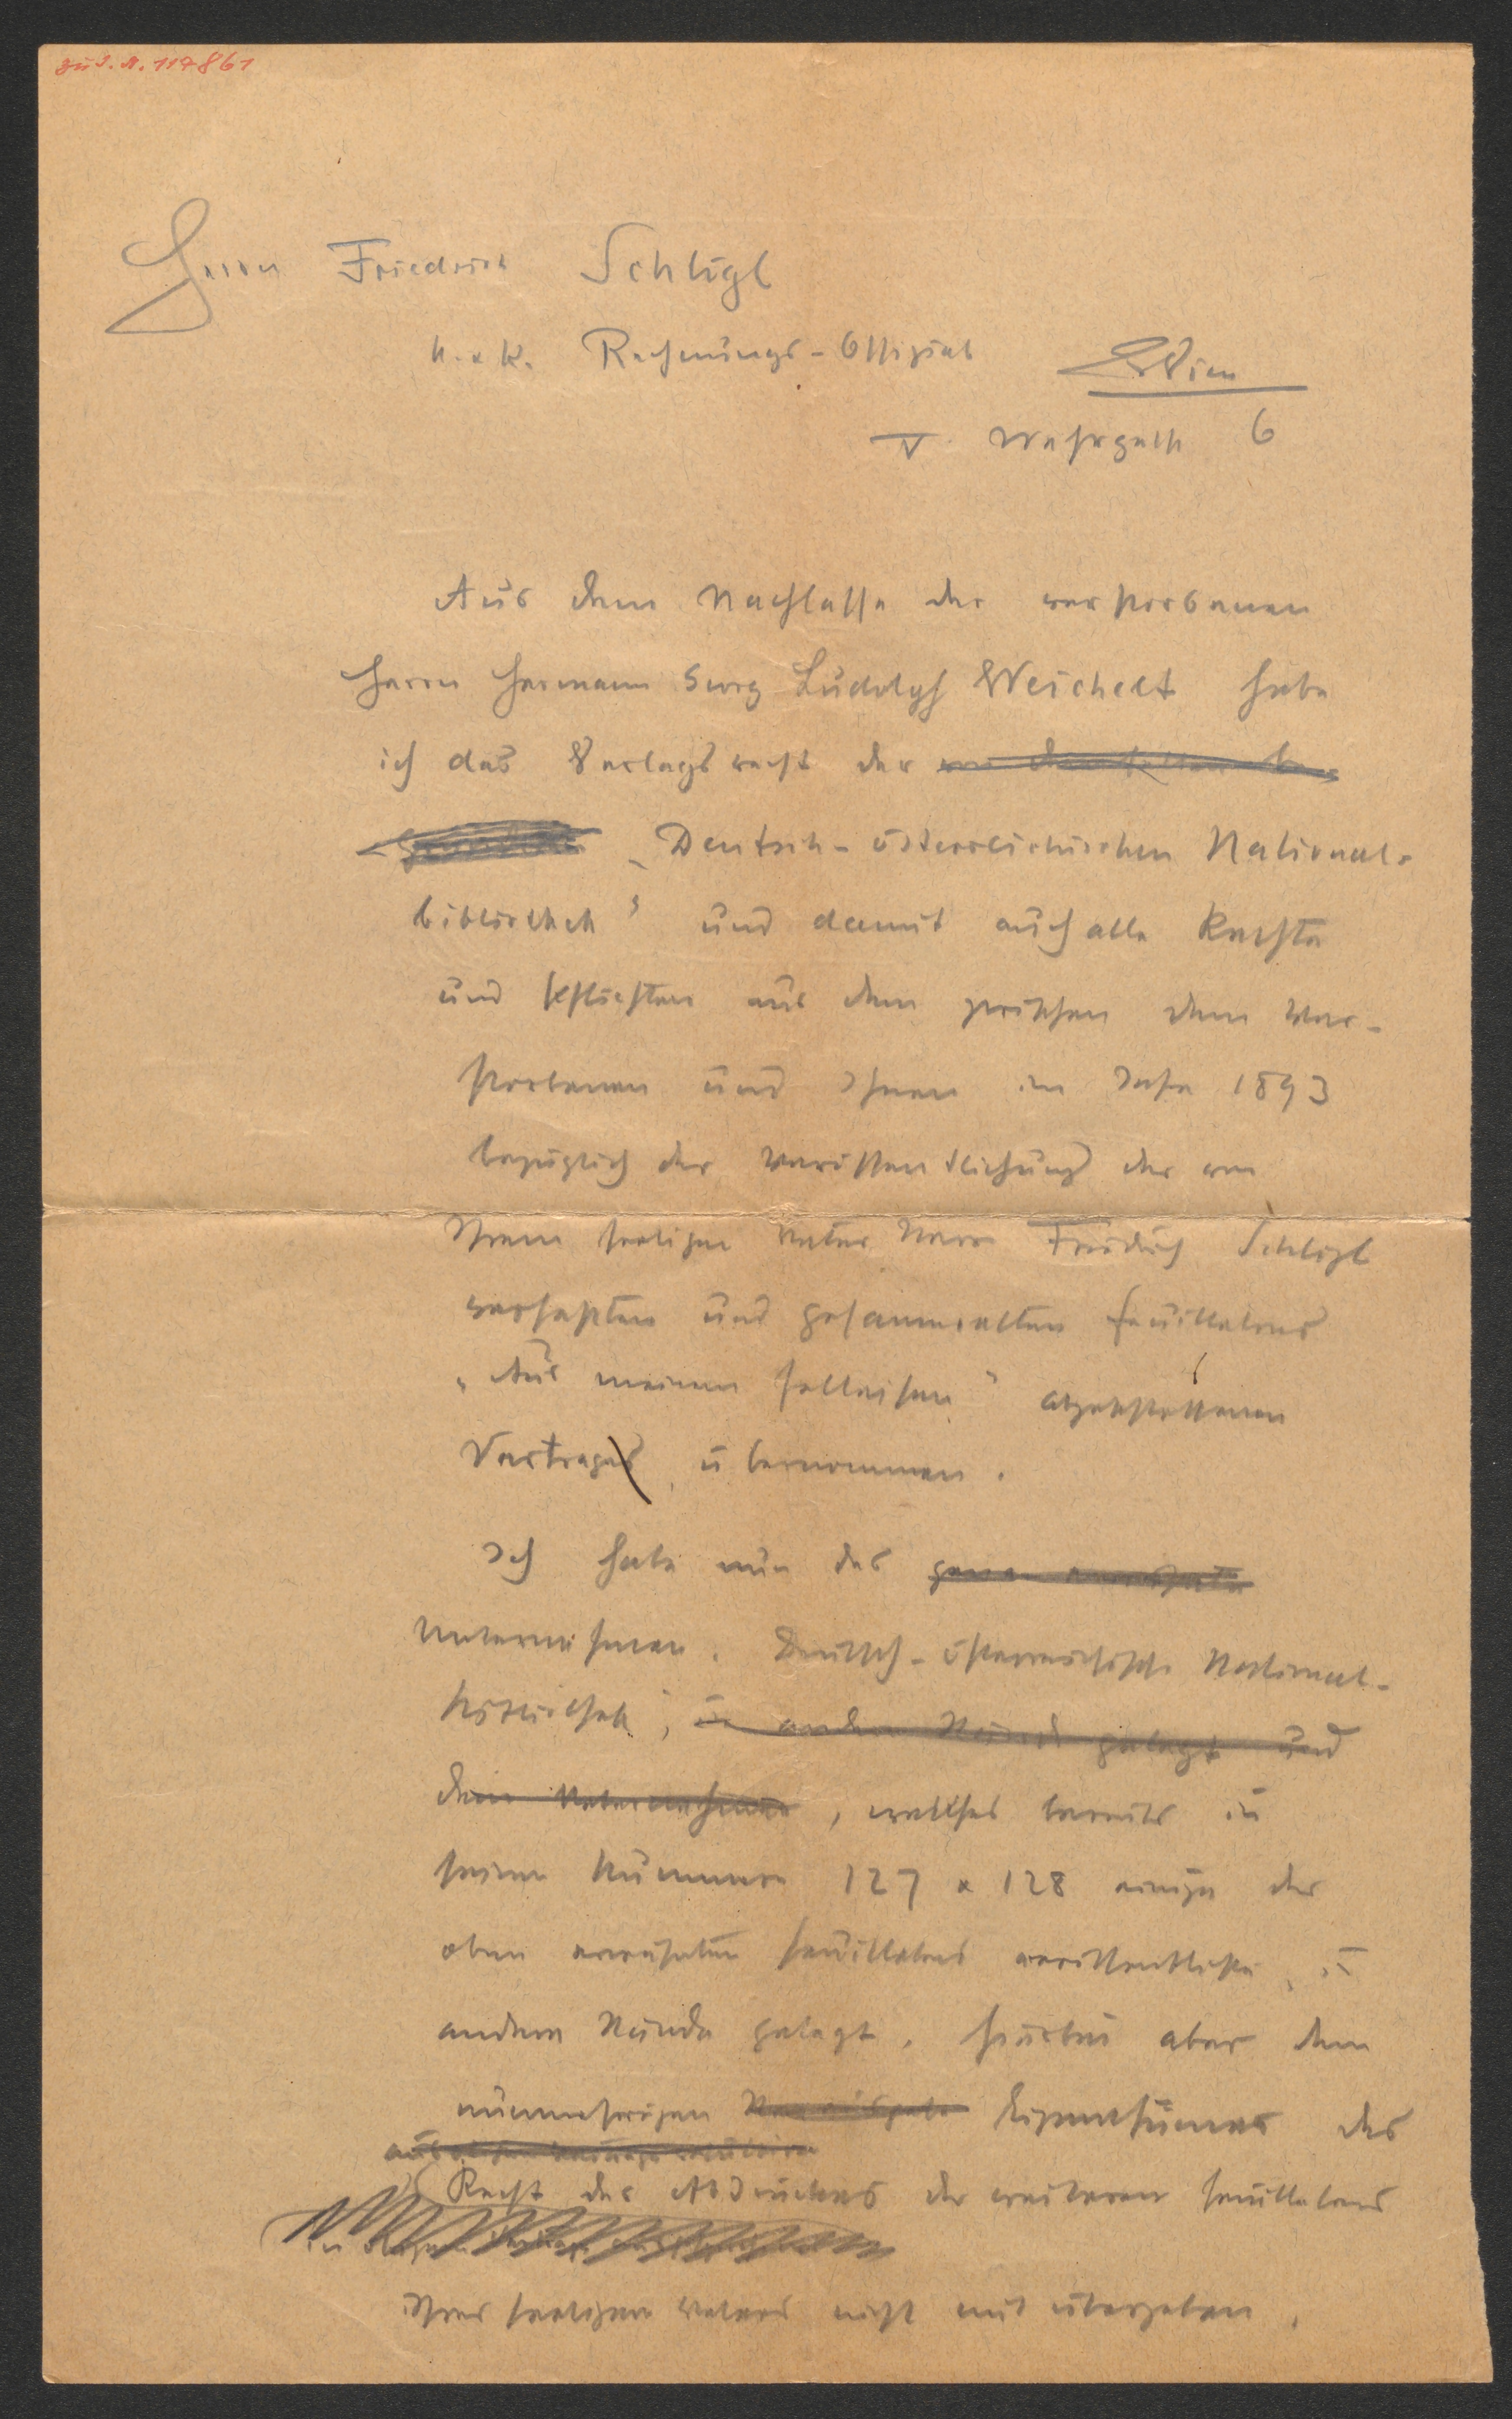 zu I. N. 117861
Herrn Friedrich Schlögl
k. & k. Rechnungs-Offizial Wien
V. Wehrgasse 6
Aus dem Nachlasse des verstorbenen
Herrn Hermann Georg Ludolph Weichelt habe
ich das Verlagsrecht der
„Deutsch-österreichischen National-
bibliothek" und damit auch alle Rechte
und Pflichten aus dem zwischen dem Ver-
storbenen und Ihnen im Jahre 1893
bezüglich der Veröffentlichung der von
Ihrem seeligen Vater Herrn Friedrich Schlögl
verfaßten und gesammelten Feuilletons
„Aus meinem Felleisen" abgeschlossenen
Vertrages übernommen.
Ich habe nun das
Unternehmen „Deutsch-österreichische National-
bibliothek", in andere Hände gelegt und
dem Unternehmen, welches bereits in
seinen Nummern 127 & 128 einige der
oben erwähnten Feuilletons veröffentlichte, in
andere Hände gelegt, hierbei aber dem
nunmehrigen Eigenthümer das
Recht des Abdruckes der weiteren Feuilletons
Ihres seeligen Vaters nicht mit übergeben.